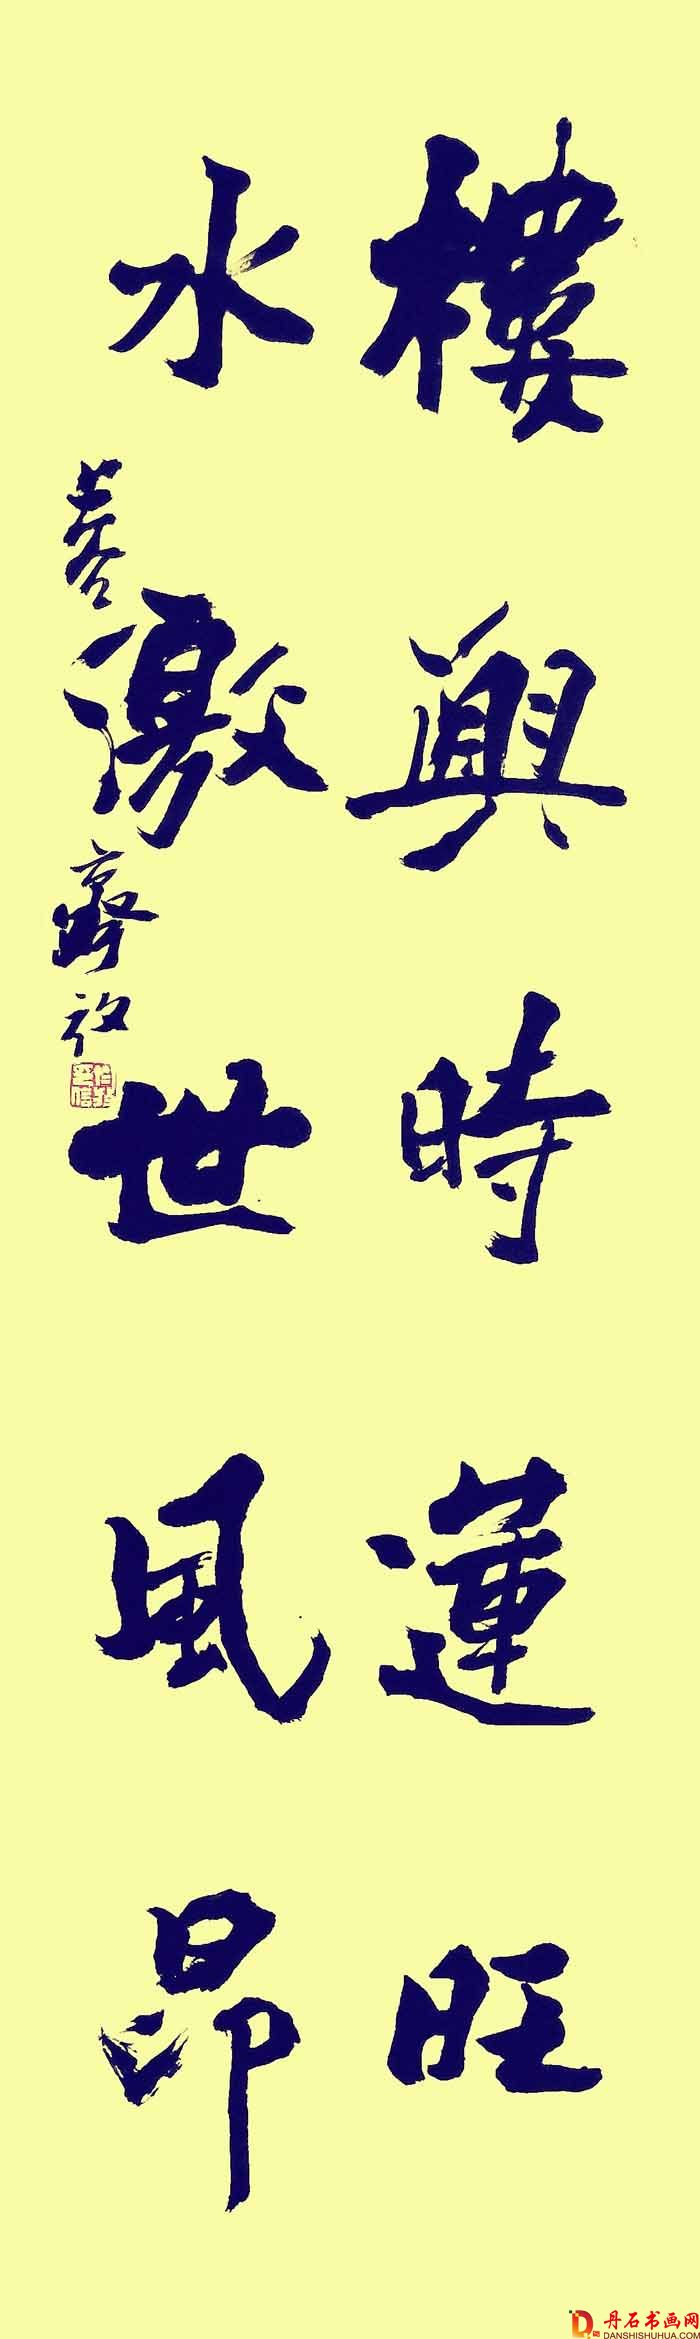 樓興時運旺
水激世風昂
丹石书画网
DANSHISHUHUA.COM